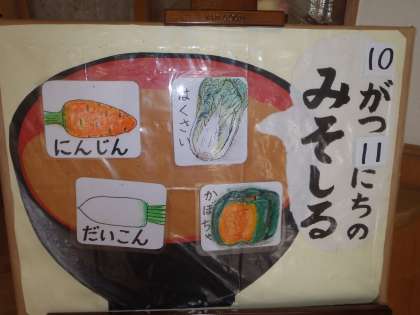 10がつ11にちの
みそしる
はくさい
にんじん
かぼちゃ
だいこん